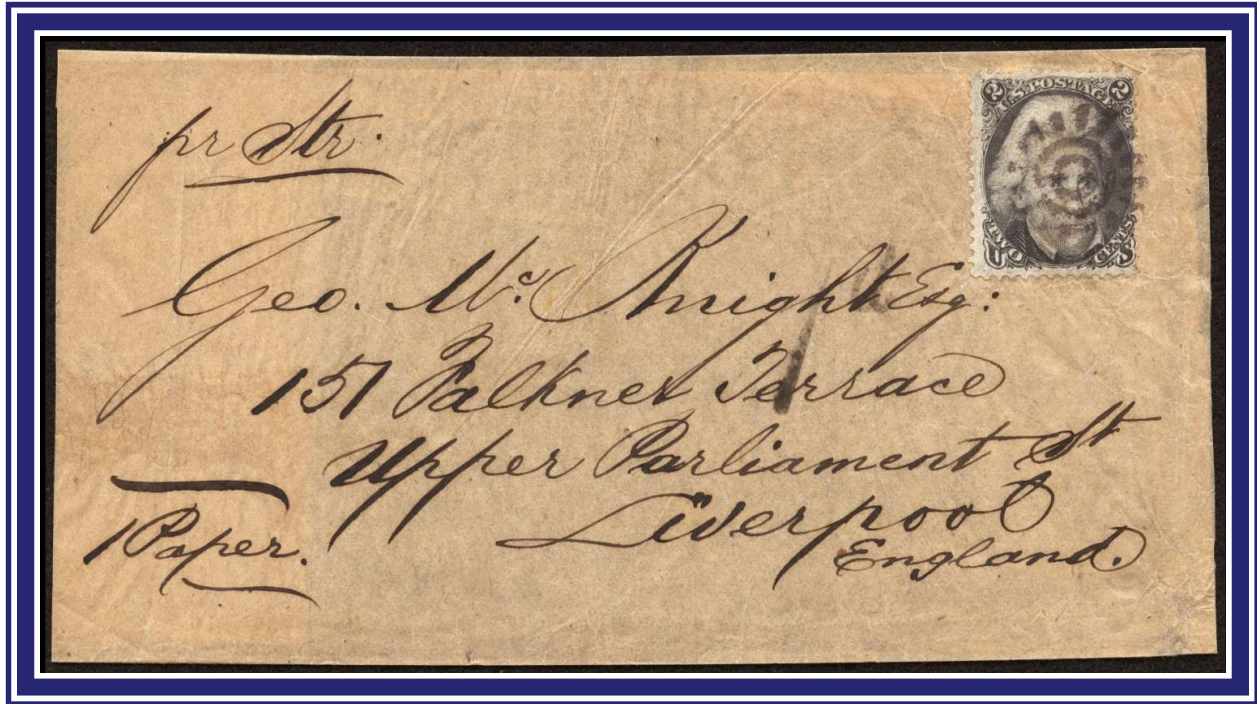 pr Str.
U.S. POSTAGE
2 2
TWO CENTS
U S
Geo. Mc Knight Esq:
157 Falkner Terrace
Upper Parliament St
Liverpool
England.
1 Paper.